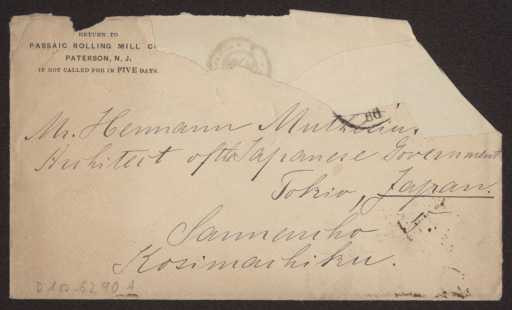 RETURN TO
PASSAIC ROLLING MILL C
PATERSON, N. J.
IF NOT CALLED FOR IN FIVE DAYS.
Mr. Hermann Muthesius,
Architect of the Japanese Government
Tokio, Japan.
Sannencho
Kosimachiku.